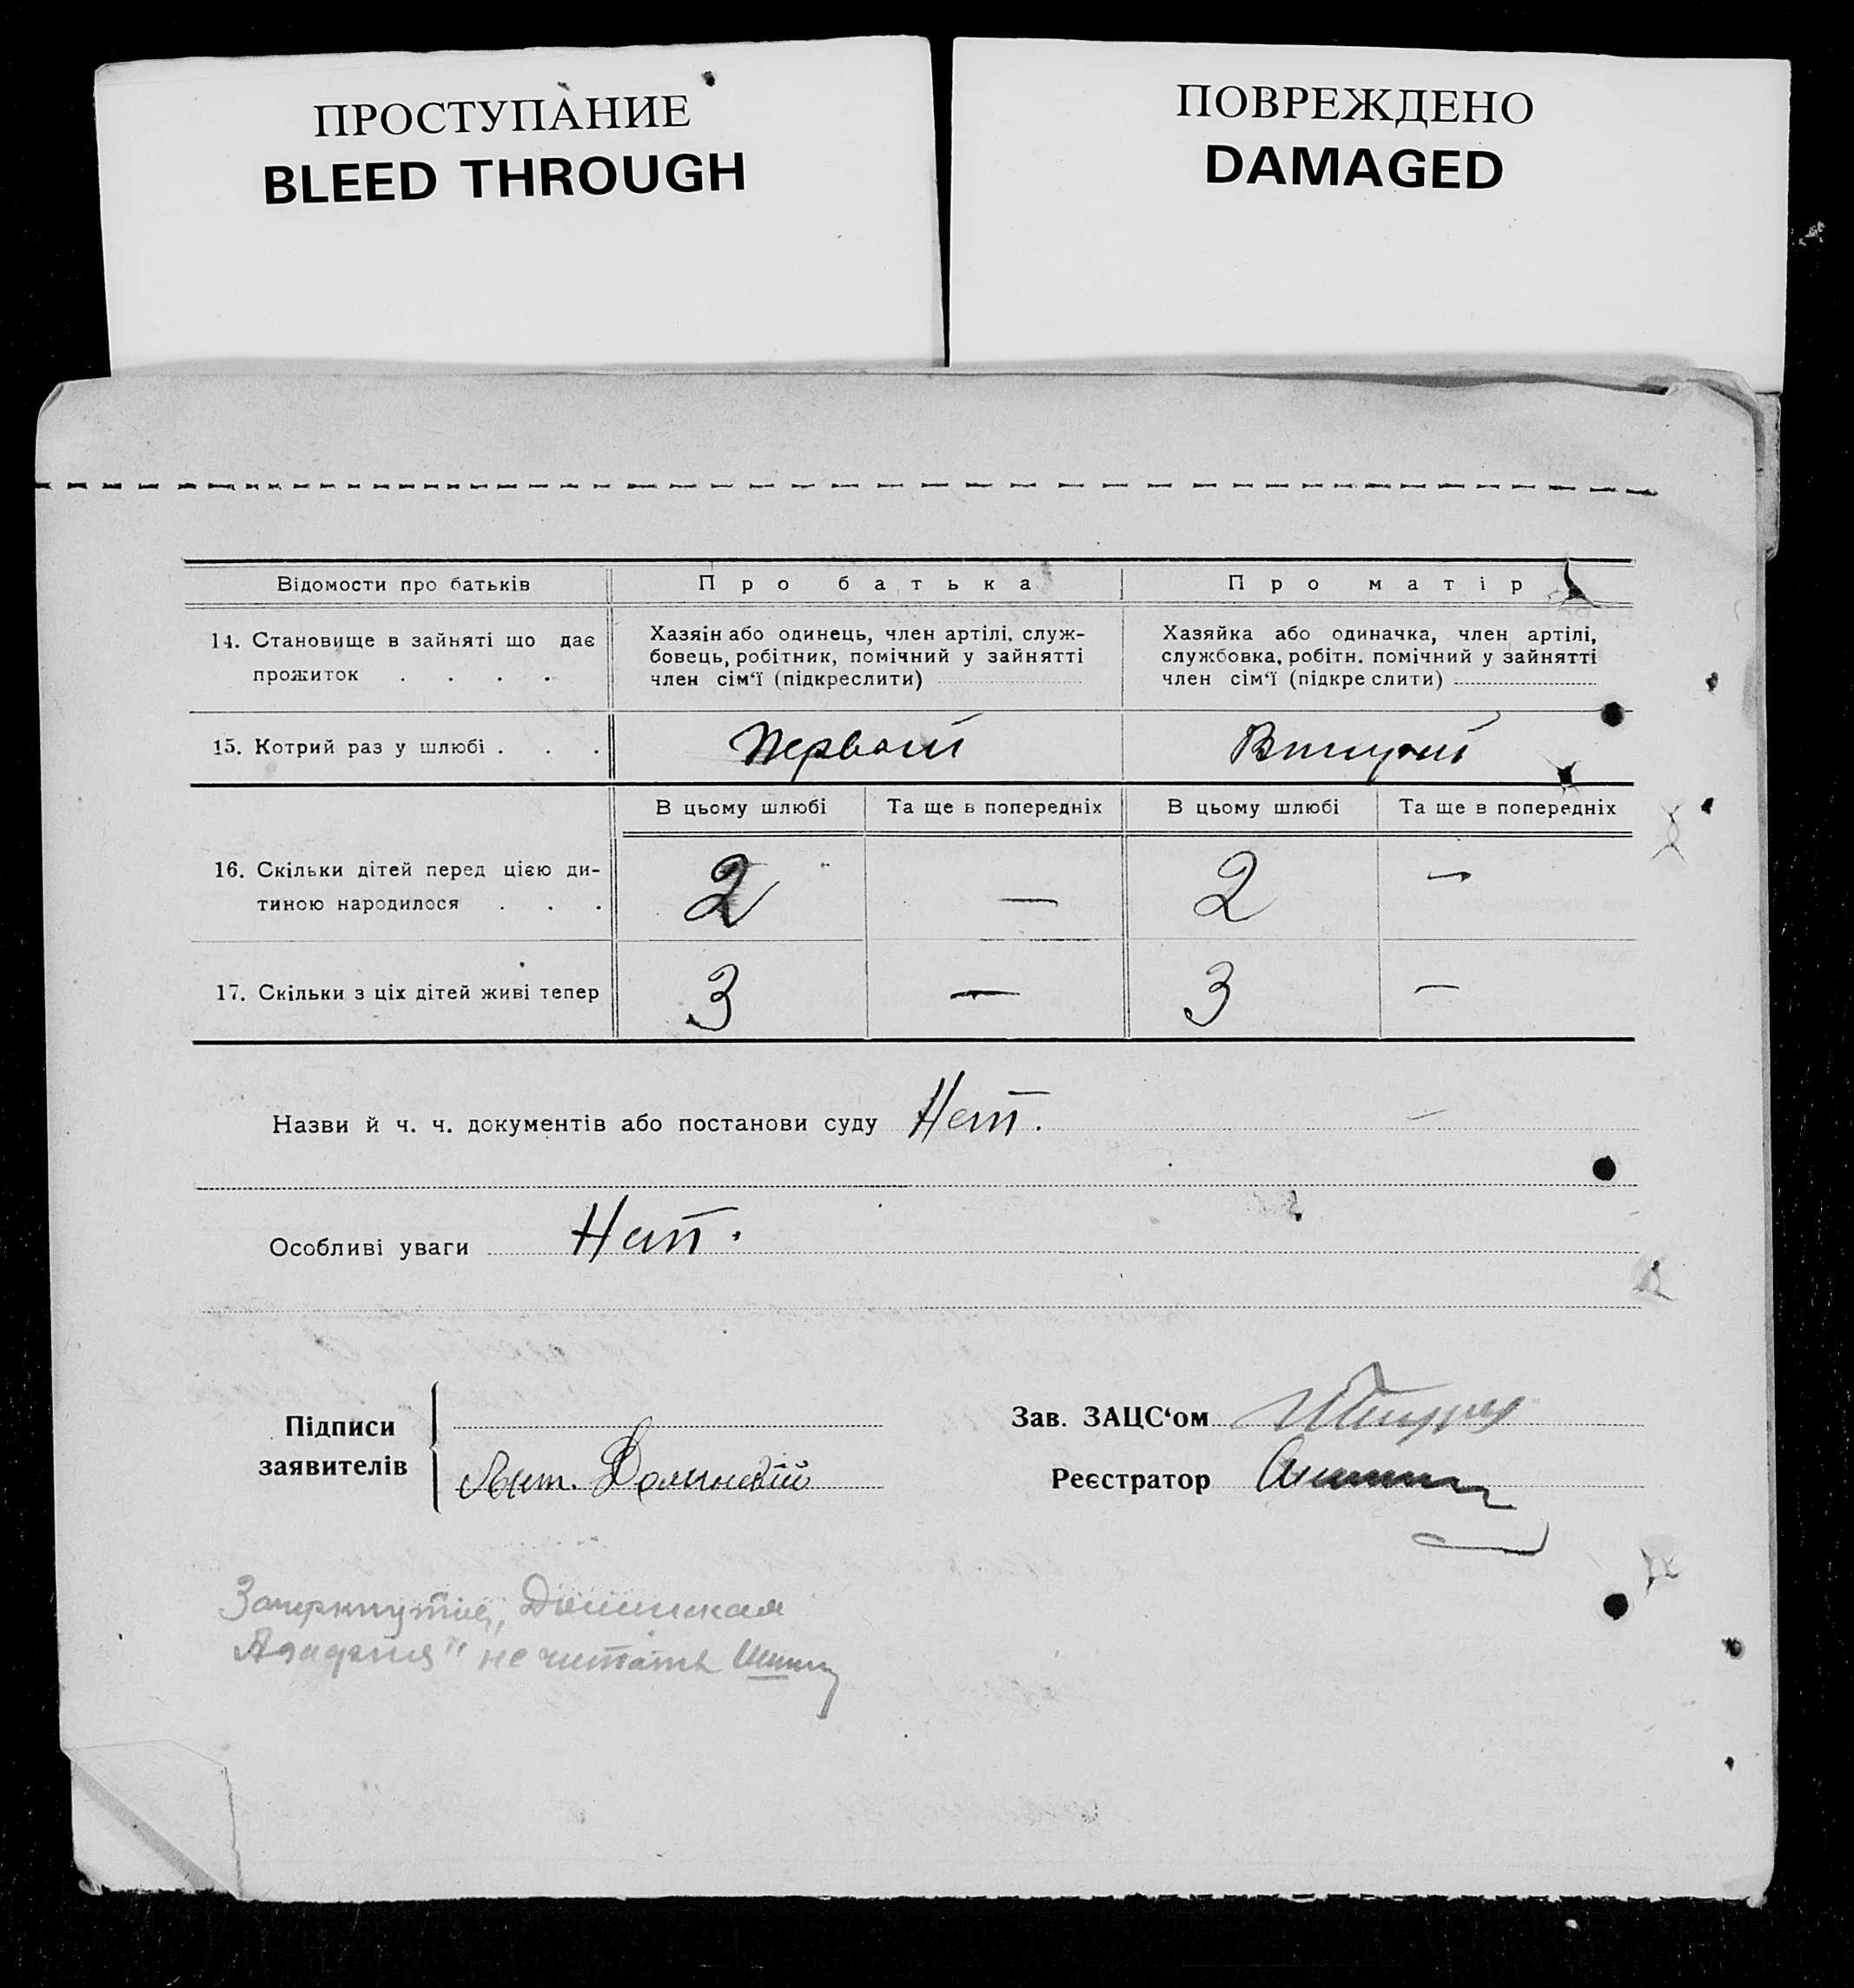 ПРОСТУПАНИЕ
BLEED THROUGH
ПОВРЕЖДЕНО
DAMAGED
Відомости про батьків
Про батька
Про матір
14. Становище в зайняті що дає
прожиток . . . .
Хазяїн або одинець, член артілі, служ-
бовець, робітник, помічний у зайнятті
член сім‘ї (підкреслити)
Хазяйка або одиначка, член артілі,
службовка, робітн. помічний у зайнятті
член сім‘ї (підкреслити)
15. Котрий раз у шлюбі . . .
Первый
Вторый
В цьому шлюбі
Та ще в попередніх
В цьому шлюбі
Та ще в попередніх
16. Скільки дітей перед цією ди-
тиною народилося . . .
2 — 2 —
17. Скільки з ціх дітей живі тепер
3 — 3 —
Назви й ч. ч. документів або постанови суду Нет.
Особливі уваги Нет.
Підписи
заявителів
Ант. Долинский
Зав. ЗАЦС‘ом
Реєстратор
Зачеркнутое „
" не читать